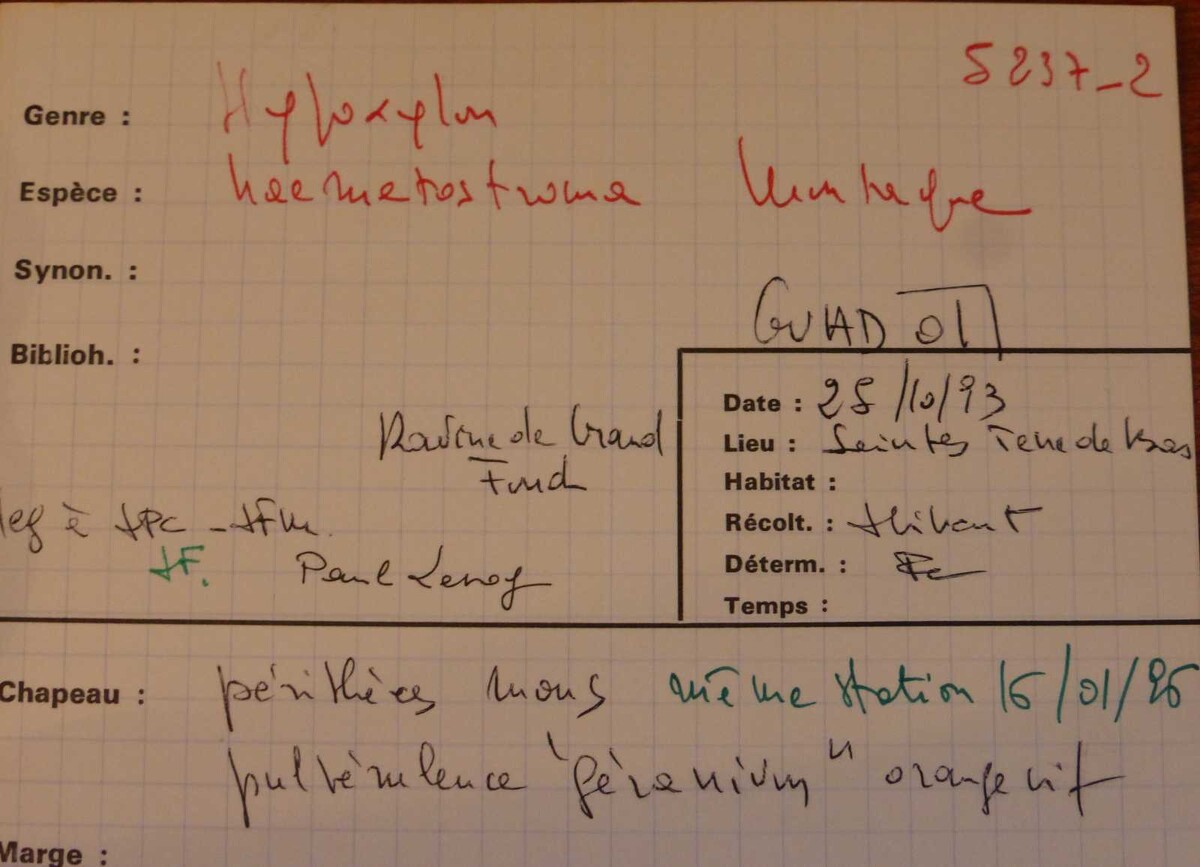 5237-2
Genre : Hypoxylon
Espèce : haematostroma Montagne
Synon. :
GUAD 01
Biblioh. :
Date : 28/10/93
Ravine de Grand
Fond
Lieu : Saintes Terre de Bas
Habitat :
leg à JPC - JFM.
Récolt. :
JF. Paul Leroy
Déterm. :
Temps :
Chapeau : périthèces mous même station 16/01/96
pulvérulence "géranium" orange vif
Marge :